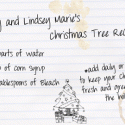 y and Lindsey Marie's
Christmas Tree Rec
parts of water
of corn syrup
tablespoons of Bleach
*add daily or
to keep your ch
fresh and gree
the h